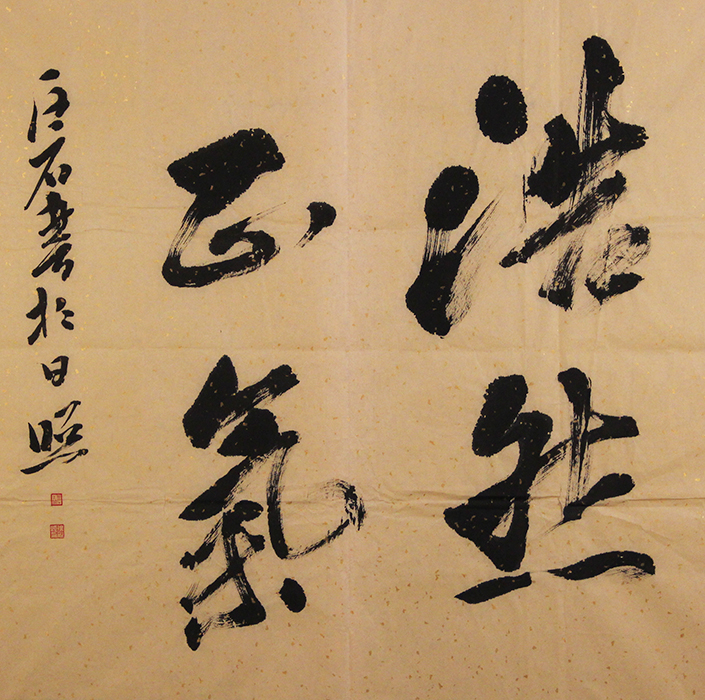 浩然
正氣
石書於日照